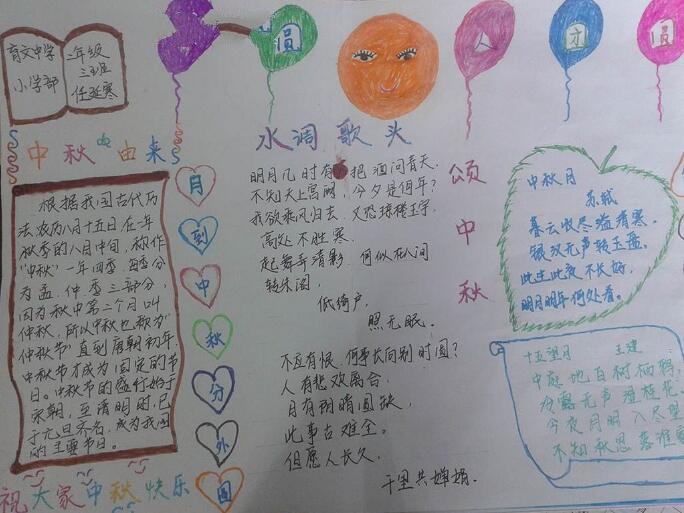 育文中学
小学部
二年级
三班
任延寒
圆
人
方
圆
中秋由来
根据我国古代历
法农历八月十五日在一年
秋季的八月中旬,秋作
"中秋"一年四季.四季分
为孟.仲.季三部分,
因为秋中第二个月叫
仲秋,所以中秋也称为
"仲秋节"直到唐朝初年.
中秋节才成为固定的节
日。中秋节的盛行始于
宋朝,至清明时,已
于元旦齐名,成为我国
的主要节日。
祝大家中秋快乐
月
到
中
秋
分
外
圆
水调歌头
明月几时有把酒问青天.
不知天上宫阙,今夕是何年?
我欲乘风归去.又恐琼楼玉宇.
高处不胜寒.
起舞弄清影.何似在人间
转朱阁,
低绮户,
照无眠.
不应有恨.何事长向别时圆?
人有悲欢离合,
月有阴晴圆缺,
此事古难全。
但愿人长久,
千里共婵娟.
颂
中
秋
中秋月
苏轼
暮云收尽溢清寒.
银汉无声转玉盘.
此生此夜不长好,
明月明年何处看。
十五望月 王建
中庭地白树栖鸦,
冷露无声湿桂花.
今夜月明人尽望
不知秋思落谁家